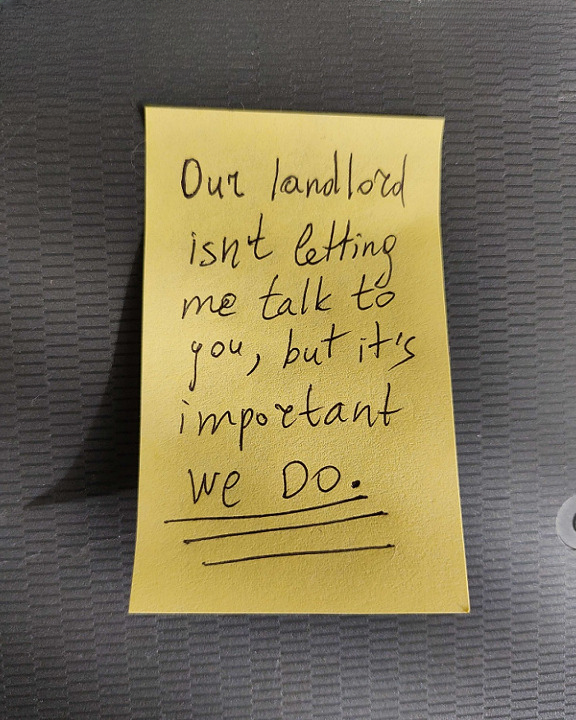 Our landlord
isn't letting
me talk to
you, but it's
important
we DO.